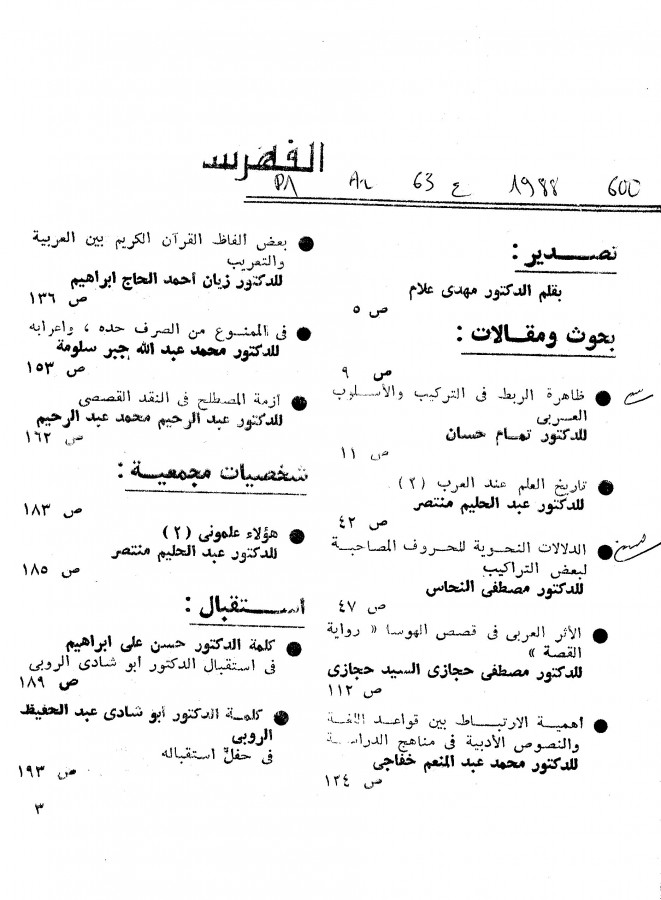 الفهرس
PA Ar 63 ع 1988 600
تصدير :
بقلم الدكتور مهدى علام
ص ٥
بحوث ومقالات :
ص ٩
ظاهرة الربط فى التركيب والأسلوب
العربى
للدكتور تمام حسان
ص ١١
تاريخ العلم عند العرب (٢)
للدكتور عبد الحليم منتصر
ص ٤٢
الدلالات النحوية للحروف المصاحبة
لبعض التراكيب
للدكتور مصطفى النحاس
ص ٤٧
الأثر العربى فى قصص الهوسا « رواية
القصة »
للدكتور مصطفى حجازى السيد حجازى
ص ١١٢
أهمية الارتباط بين قواعد اللغة
والنصوص الأدبية فى مناهج الدراسة
للدكتور محمد عبد المنعم خفاجى
ص ١٢٤
بعض ألفاظ القرآن الكريم بين العربية
والتعريب
للدكتور زيان أحمد الحاج ابراهيم
ص ١٣٦
فى الممنوع من الصرف حده ، واعرابه
للدكتور محمد عبد الله جبر سلومة
ص ١٥٣
أزمة المصطلح فى النقد القصصى
للدكتور عبد الرحيم محمد عبد الرحيم
ص ١٦٢
شخصيات مجمعية :
ص ١٨٣
هؤلاء علمونى (٢)
للدكتور عبد الحليم منتصر
ص ١٨٥
أستقبال :
كلمة الدكتور حسن على ابراهيم
فى استقبال الدكتور ابو شادى الروبى
ص ١٨٩
كلمة الدكتور أبو شادى عبد الحفيظ
الروبى
فى حفل استقباله
ص ١٩٣
٣